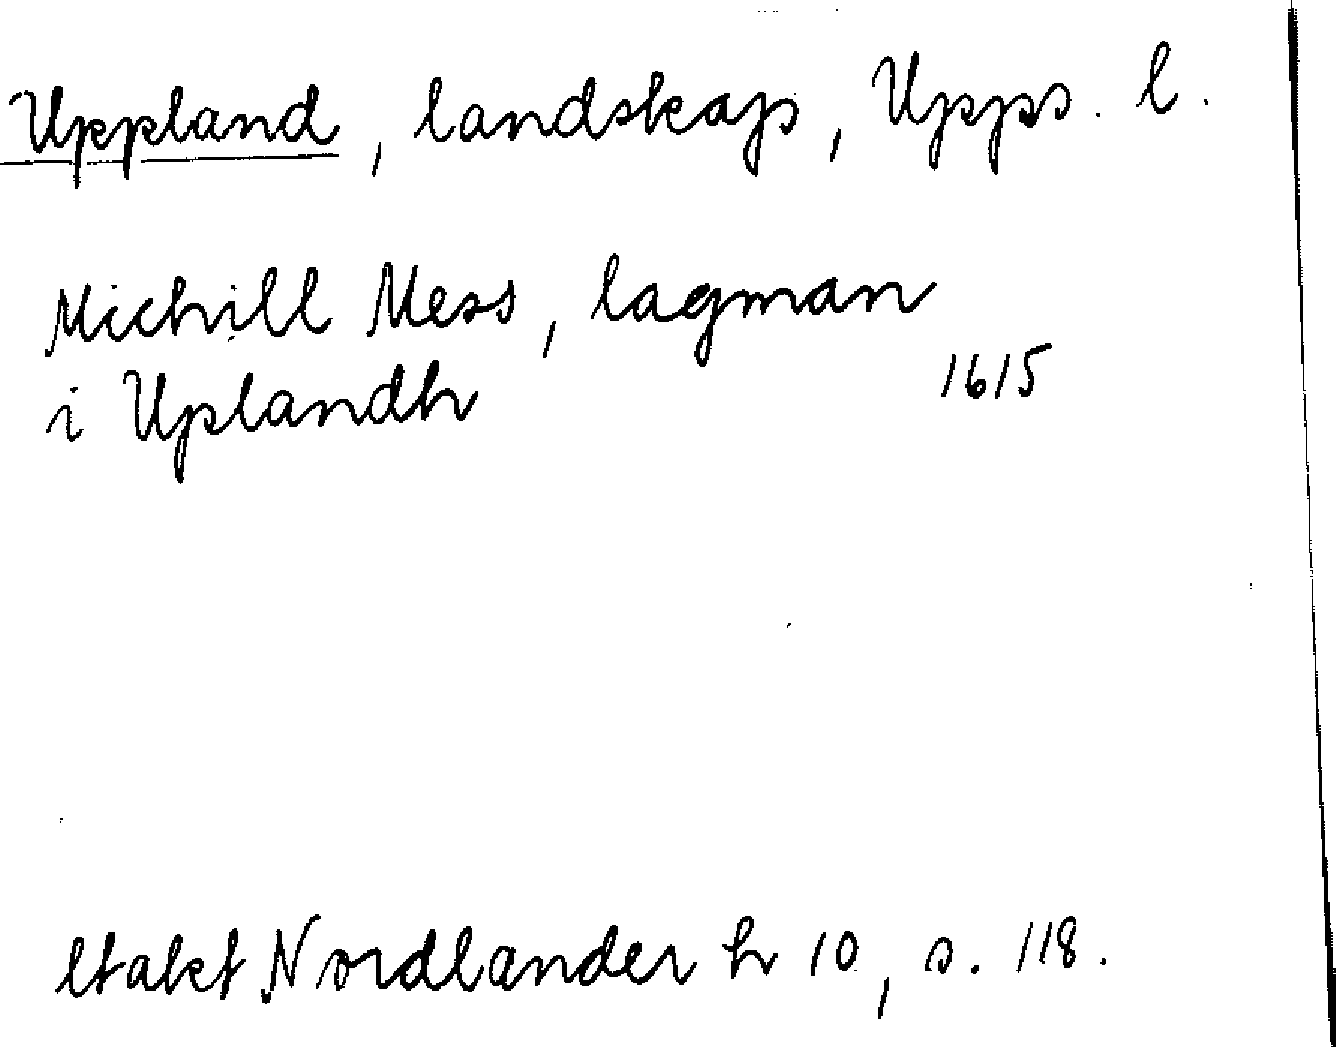 Uppland, landskap, Upps. l.
Michill Mess, lagman
i Uplandh 1615
Utakt Nordlander h 10, s. 118.